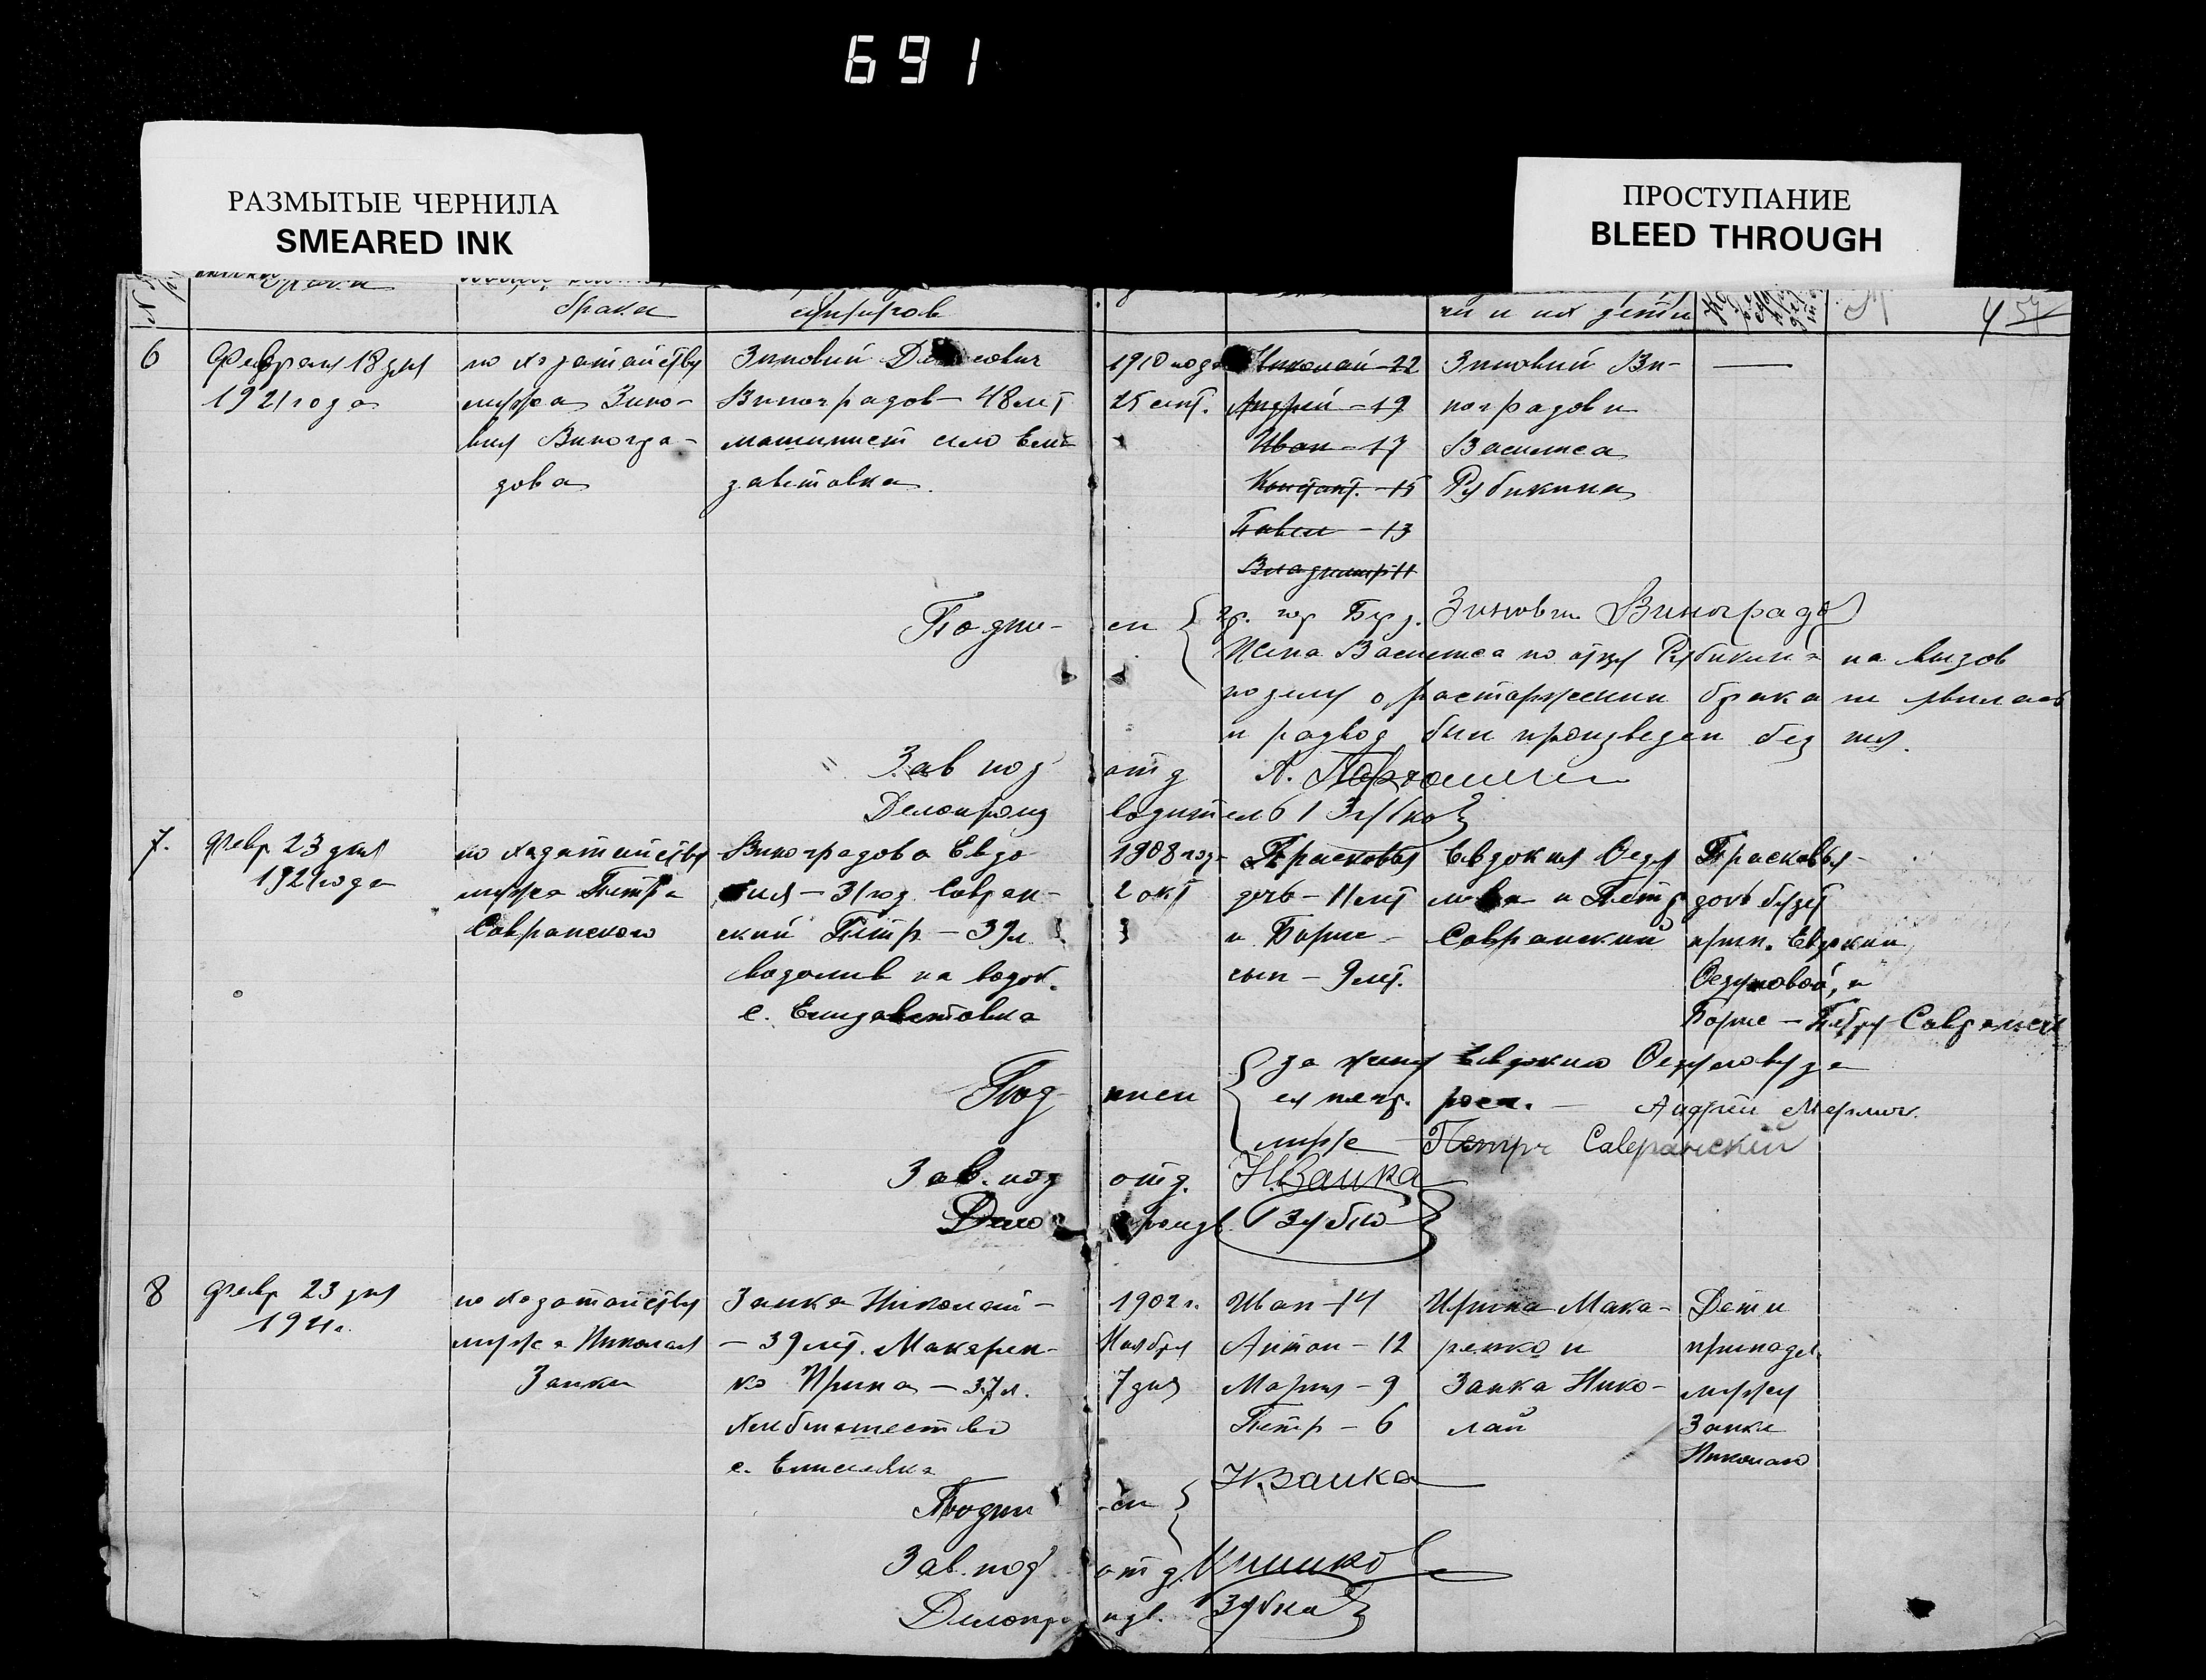 691
РАЗМЫТЫЕ ЧЕРНИЛА
SMEARED INK
ПРОСТУПАНИЕ
BLEED THROUGH
брака
супругов
чи и их дети
6
Февраля 18 дня
1921 года
по ходатайству
мужа Зино-
вия Виногра-
дова
Зиновий
Виноградов 48 лет
машинист село Ели-
заветовка
1910 года
25 сент.
Николай - 22
Андрей - 19
Иван - 17
Констант. - 15
Павел - 13
Владимир 11
Зиновий Ви-
ноградов и
Василиса
Рубикина
Подпи- си
гр. гор Зиновий Виноградов
Жена Василиса по отцу Рубикина на вызов
по делу о расторжении брака не явилась
и развод был произведен без нея.
Зав под отд А.
Делопроизводитель Зубко
7.
февр 23 дня
1921 года
по ходатайству
мужа Петра
Савранского
Виноградова Евдо
кия - 31 год. Савран-
ский Петр - 39 л.
водолив на водок.
с. Елизаветовка
1908 год
2 окт
Прасковья
дочь - 11 лет
и Борис -
сын - 9 лет.
Евдокия
и Петр
Савранский
Прасковья -
дочь будет
прин. Евдокии
и
Борис - Петру Савранск
Под писи
за жену Евдокию
ея негр. росп. - Андрей
муже Петръ Савранскій
Зав. под отд. Н. Заика
Дело произв. Зубко
8
февр 23 дня
1921 г.
по ходатайству
мужа Николая
Заики
Заика Николай -
- 39 лет. Макарен-
ко Ирина - 37 л.
хлебопашество
с.
1902 г.
Ноября
7 дня
Иван - 14
Антон - 12
Мария - 9
Петр - 6
Ирина Мака-
ренко и
Заика Нико-
лай
Дети
принадл.
мужу
Заике
Николаю
Подпи -си
Н. Заика
Зав. под отд.
Делопр изв. Зубко